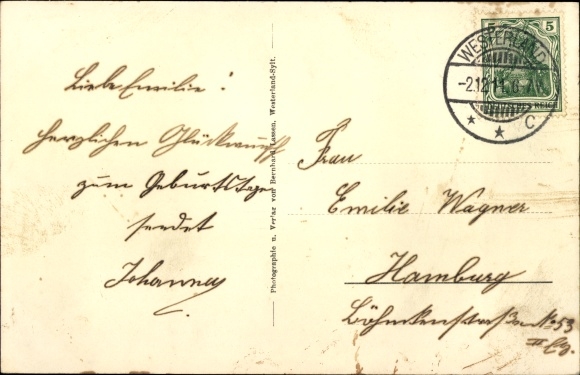 Liebe Emilie!
herzlichen Glückwunsch
zum Geburtstage
sendet
Johanna
Photographie u. Verlag von Bernhard Lassen, Westerland-Sylt.
5
WESTERLAND
-2.12.11.6-7N.
* * C
REICH
Frau
Emilie Wagner
Hamburg
No 53